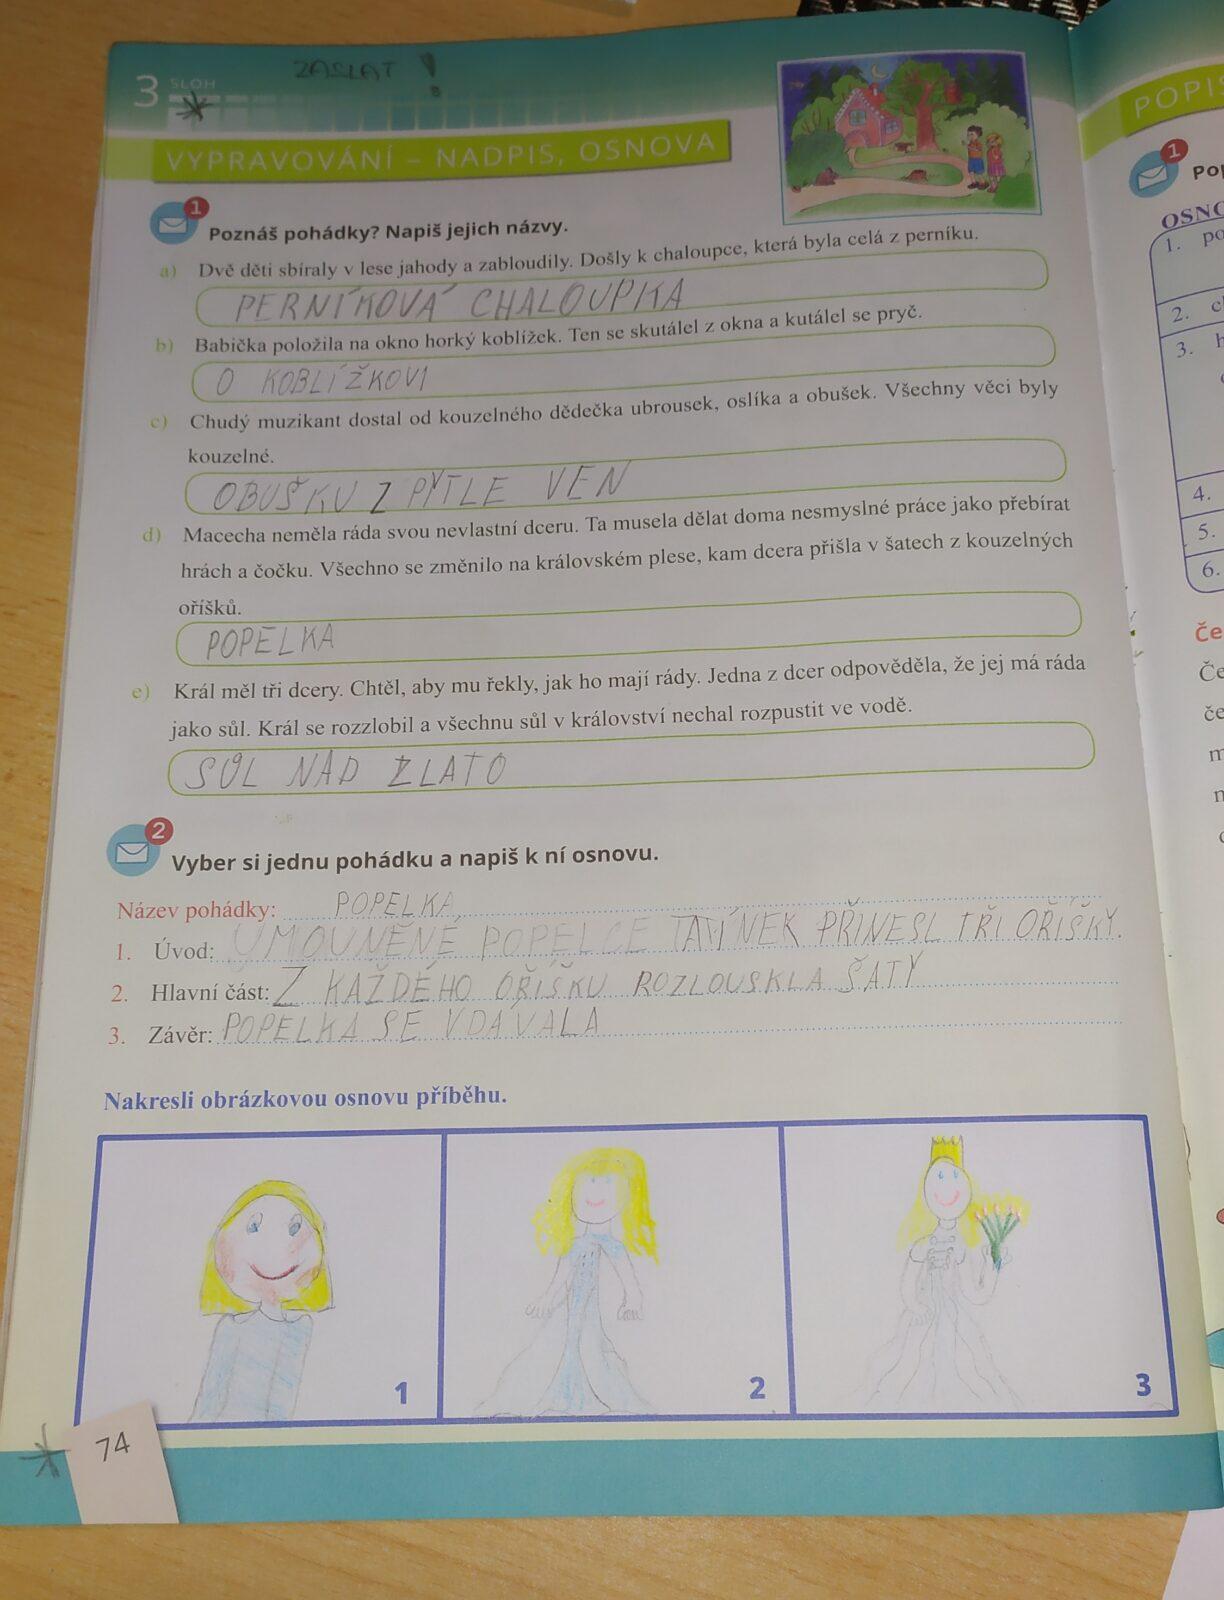 ZASLAT !
3 SLOH
VYPRAVOVÁNÍ – NADPIS, OSNOVA
1
Poznáš pohádky? Napiš jejich názvy.
a) Dvě děti sbíraly v lese jahody a zabloudily. Došly k chaloupce, která byla celá z perníku.
PERNÍKOVÁ CHALOUPKA
b) Babička položila na okno horký koblížek. Ten se skutálel z okna a kutálel se pryč.
O KOBLÍŽKOVI
c) Chudý muzikant dostal od kouzelného dědečka ubrousek, oslíka a obušek. Všechny věci byly
kouzelné.
OBUŠKU Z PYTLE VEN
d) Macecha neměla ráda svou nevlastní dceru. Ta musela dělat doma nesmyslné práce jako přebírat
hrách a čočku. Všechno se změnilo na královském plese, kam dcera přišla v šatech z kouzelných
oříšků.
POPELKA
e) Král měl tři dcery. Chtěl, aby mu řekly, jak ho mají rády. Jedna z dcer odpověděla, že jej má ráda
jako sůl. Král se rozzlobil a všechnu sůl v království nechal rozpustit ve vodě.
SŮL NAD ZLATO
2
Vyber si jednu pohádku a napiš k ní osnovu.
Název pohádky: POPELKA
1. Úvod: UMOUNĚNÉ POPELCE TATÍNEK PŘINESL TŘI OŘÍŠKY.
2. Hlavní část: Z KAŽDÉHO OŘÍŠKU ROZLOUSKLA ŠATY
3. Závěr: POPELKA SE VDÁVALA
Nakresli obrázkovou osnovu příběhu.
1
2
3
74
POPIS
1
OSNO
1. po
2.
3.
4.
5.
6.
Če
Če
če
m